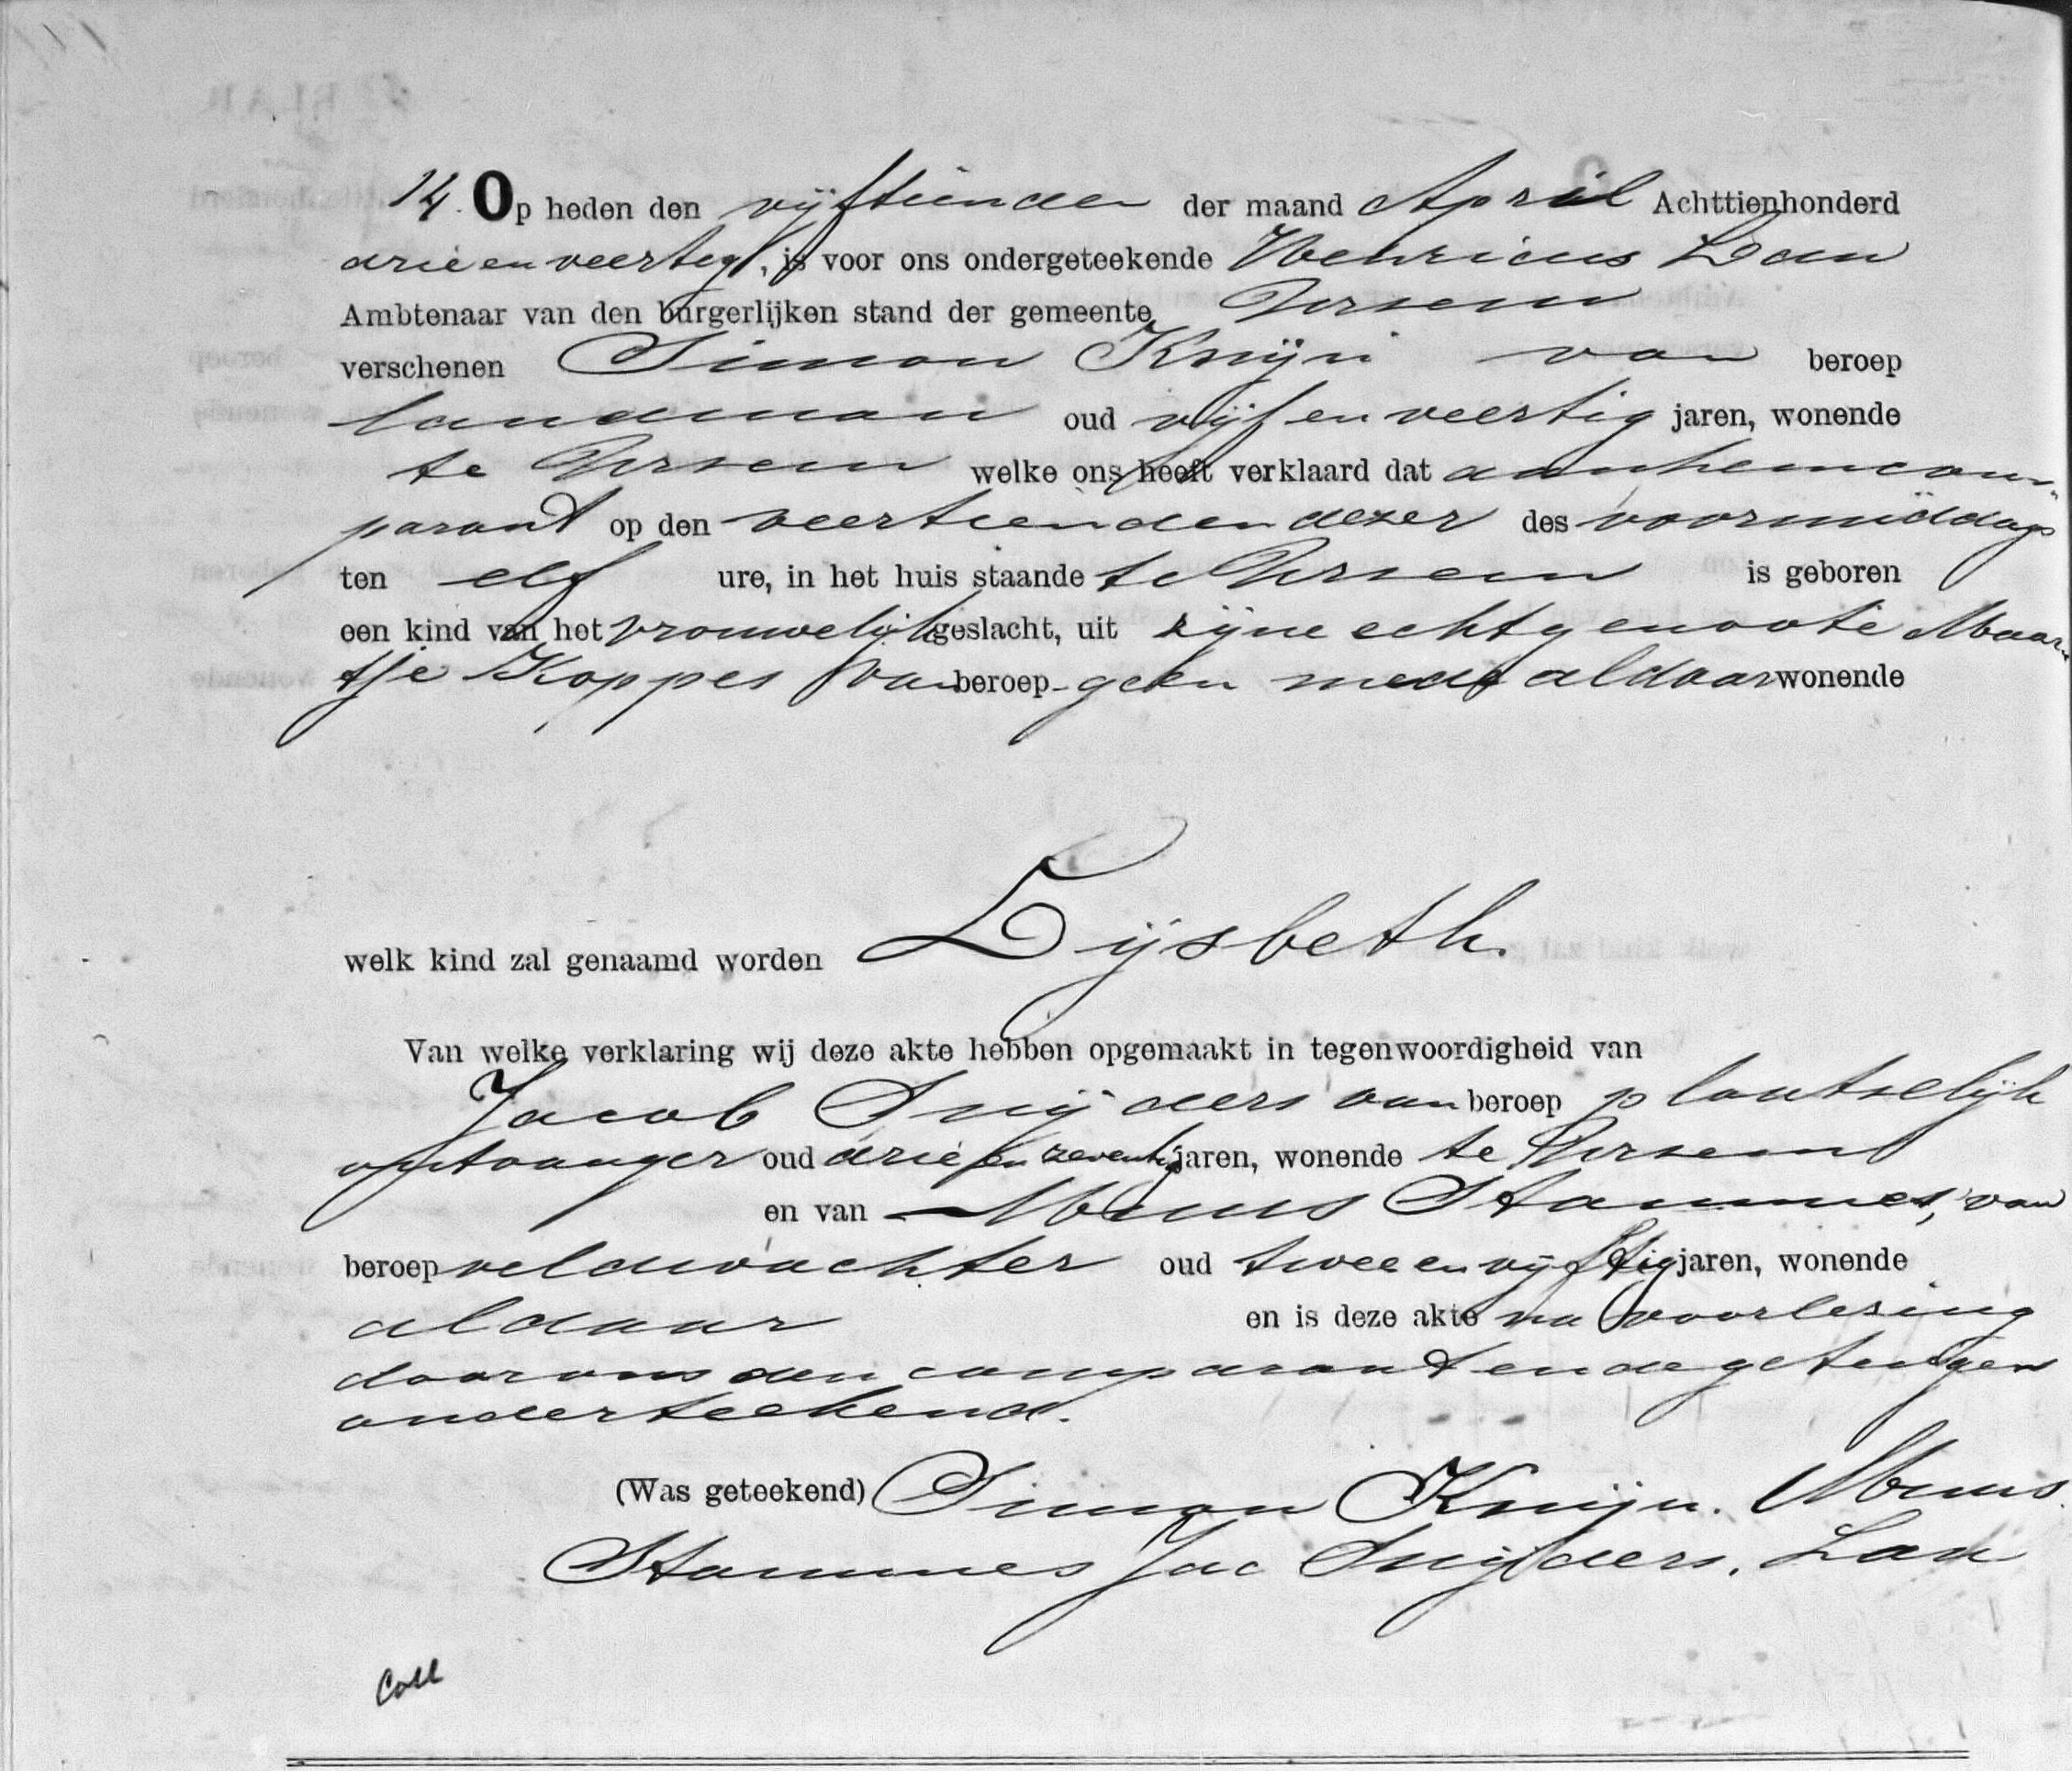 14. Op heden den vijftienden der maand April Achttienhonderd
drie en veertig, is voor ons ondergeteekende Henricus Lan
Ambtenaar van den burgerlijken stand der gemeente Ursem
verschenen Simon Knijn van beroep
landman oud vijf en veertig jaren, wonende
te Ursem welke ons heeft verklaard dat aan hem com-
parant op den veertienden dezer des voormiddags
ten elf ure, in het huis staande te Ursem is geboren
een kind van het vrouwelijk geslacht, uit zijne echtgenoote Maar-
tje Koppes van beroep geen mede aldaar wonende
welk kind zal genaamd worden Lijsbeth.
Van welke verklaring wij deze akte hebben opgemaakt in tegenwoordigheid van
Jacob Snijders van beroep plaatselijk
ontvanger oud drie en zeventig jaren, wonende te Ursem
en van Muus Stammes, van
beroep veldwachter oud twee en vijftig jaren, wonende
aldaar en is deze akte na voorlezing
door ons den comparant en de getuigen
onderteekend.
(Was geteekend) Simon Knijn. Muus
Stammes Jac Snijders. Lan
Coll